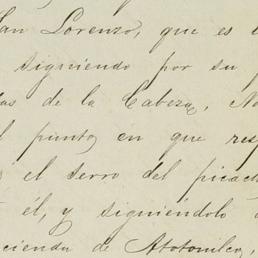 San Lorenzo, que es
siguiendo por su
de la Cabeza,
punto en que
el serro del
él, y siguiéndolo
de Atotonilco,